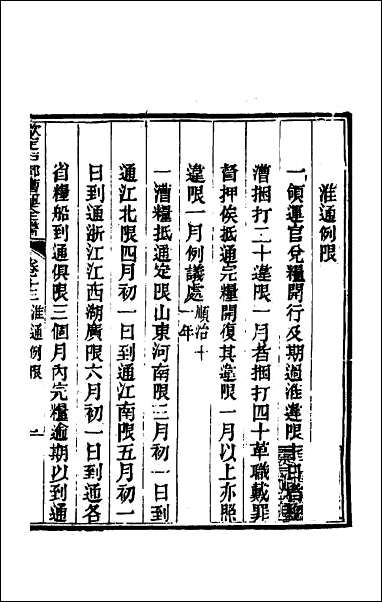 淮通例限
一領運官兌糧開行及期過淮違限十日者
漕捆打二十違限一月者捆打四十革職戴罪
督押俟抵通完糧開復其違限一月以上亦照
違限一月例議處順治十一年
一漕糧抵通定限山東河南限三月初一日到
通江北限四月初一日到通江南限五月初一
日到通浙江江西湖廣限六月初一日到通各
省糧船到通俱限三個月內完糧逾期以到通
欽定戶部漕運全書 卷十三 淮通例限 一